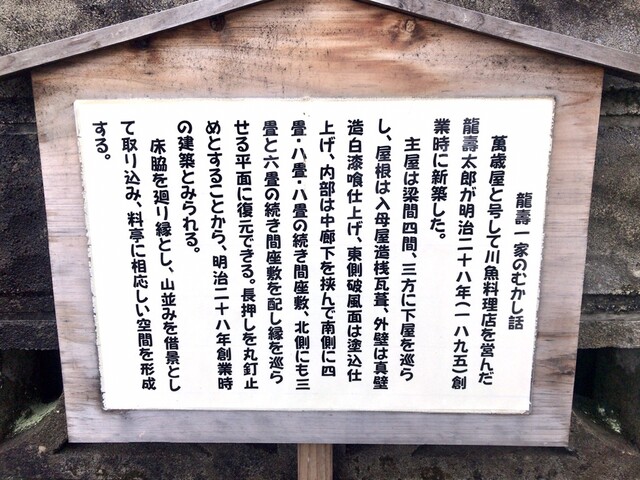 龍壽一家のむかし話
萬歳屋と号して川魚料理店を営んだ
龍壽太郎が明治二十八年(一八九五)創
業時に新築した。
主屋は梁間四間、三方に下屋を巡ら
し、屋根は入母屋造桟瓦葺、外壁は真壁
造白漆喰仕上げ、東側破風面は塗込仕
上げ、内部は中廊下を挟んで南側に四
畳・八畳・八畳の続き間座敷、北側にも三
畳と六畳の続き間座敷を配し縁を巡ら
せる平面に復元できる。長押しを丸釘止
めとすることから、明治二十八年創業時
の建築とみられる。
床脇を廻り縁とし、山並みを借景とし
て取り込み、料亭に相応しい空間を形成
する。